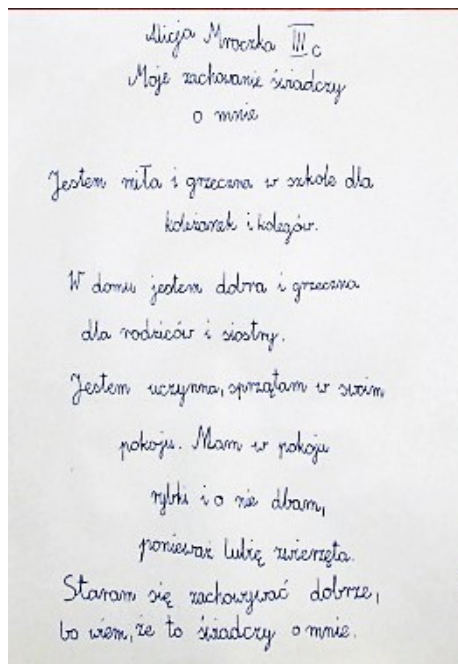 Alicja Mroczka III c
Moje zachowanie świadczy
o mnie
Jestem miła i grzeczna w szkole dla
koleżanek i kolegów.
W domu jestem dobra i grzeczna
dla rodziców i siostry.
Jestem uczynna, sprzątam w swoim
pokoju. Mam w pokoju
rybki i o nie dbam,
ponieważ lubię zwierzęta.
Staram się zachowywać dobrze,
bo wiem, że to świadczy o mnie.